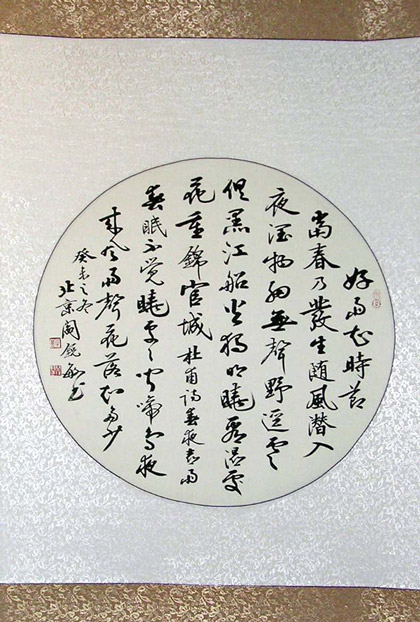 好雨知時節
當春乃發生随風潜入
夜潤物細無聲野逕雲
俱黑江船火独明曉看湿處
花重錦官城 杜甫詩春夜喜雨
春眠不覺曉處々聞啼鳥夜
來風雨聲花落知多少
癸未之冬
北京